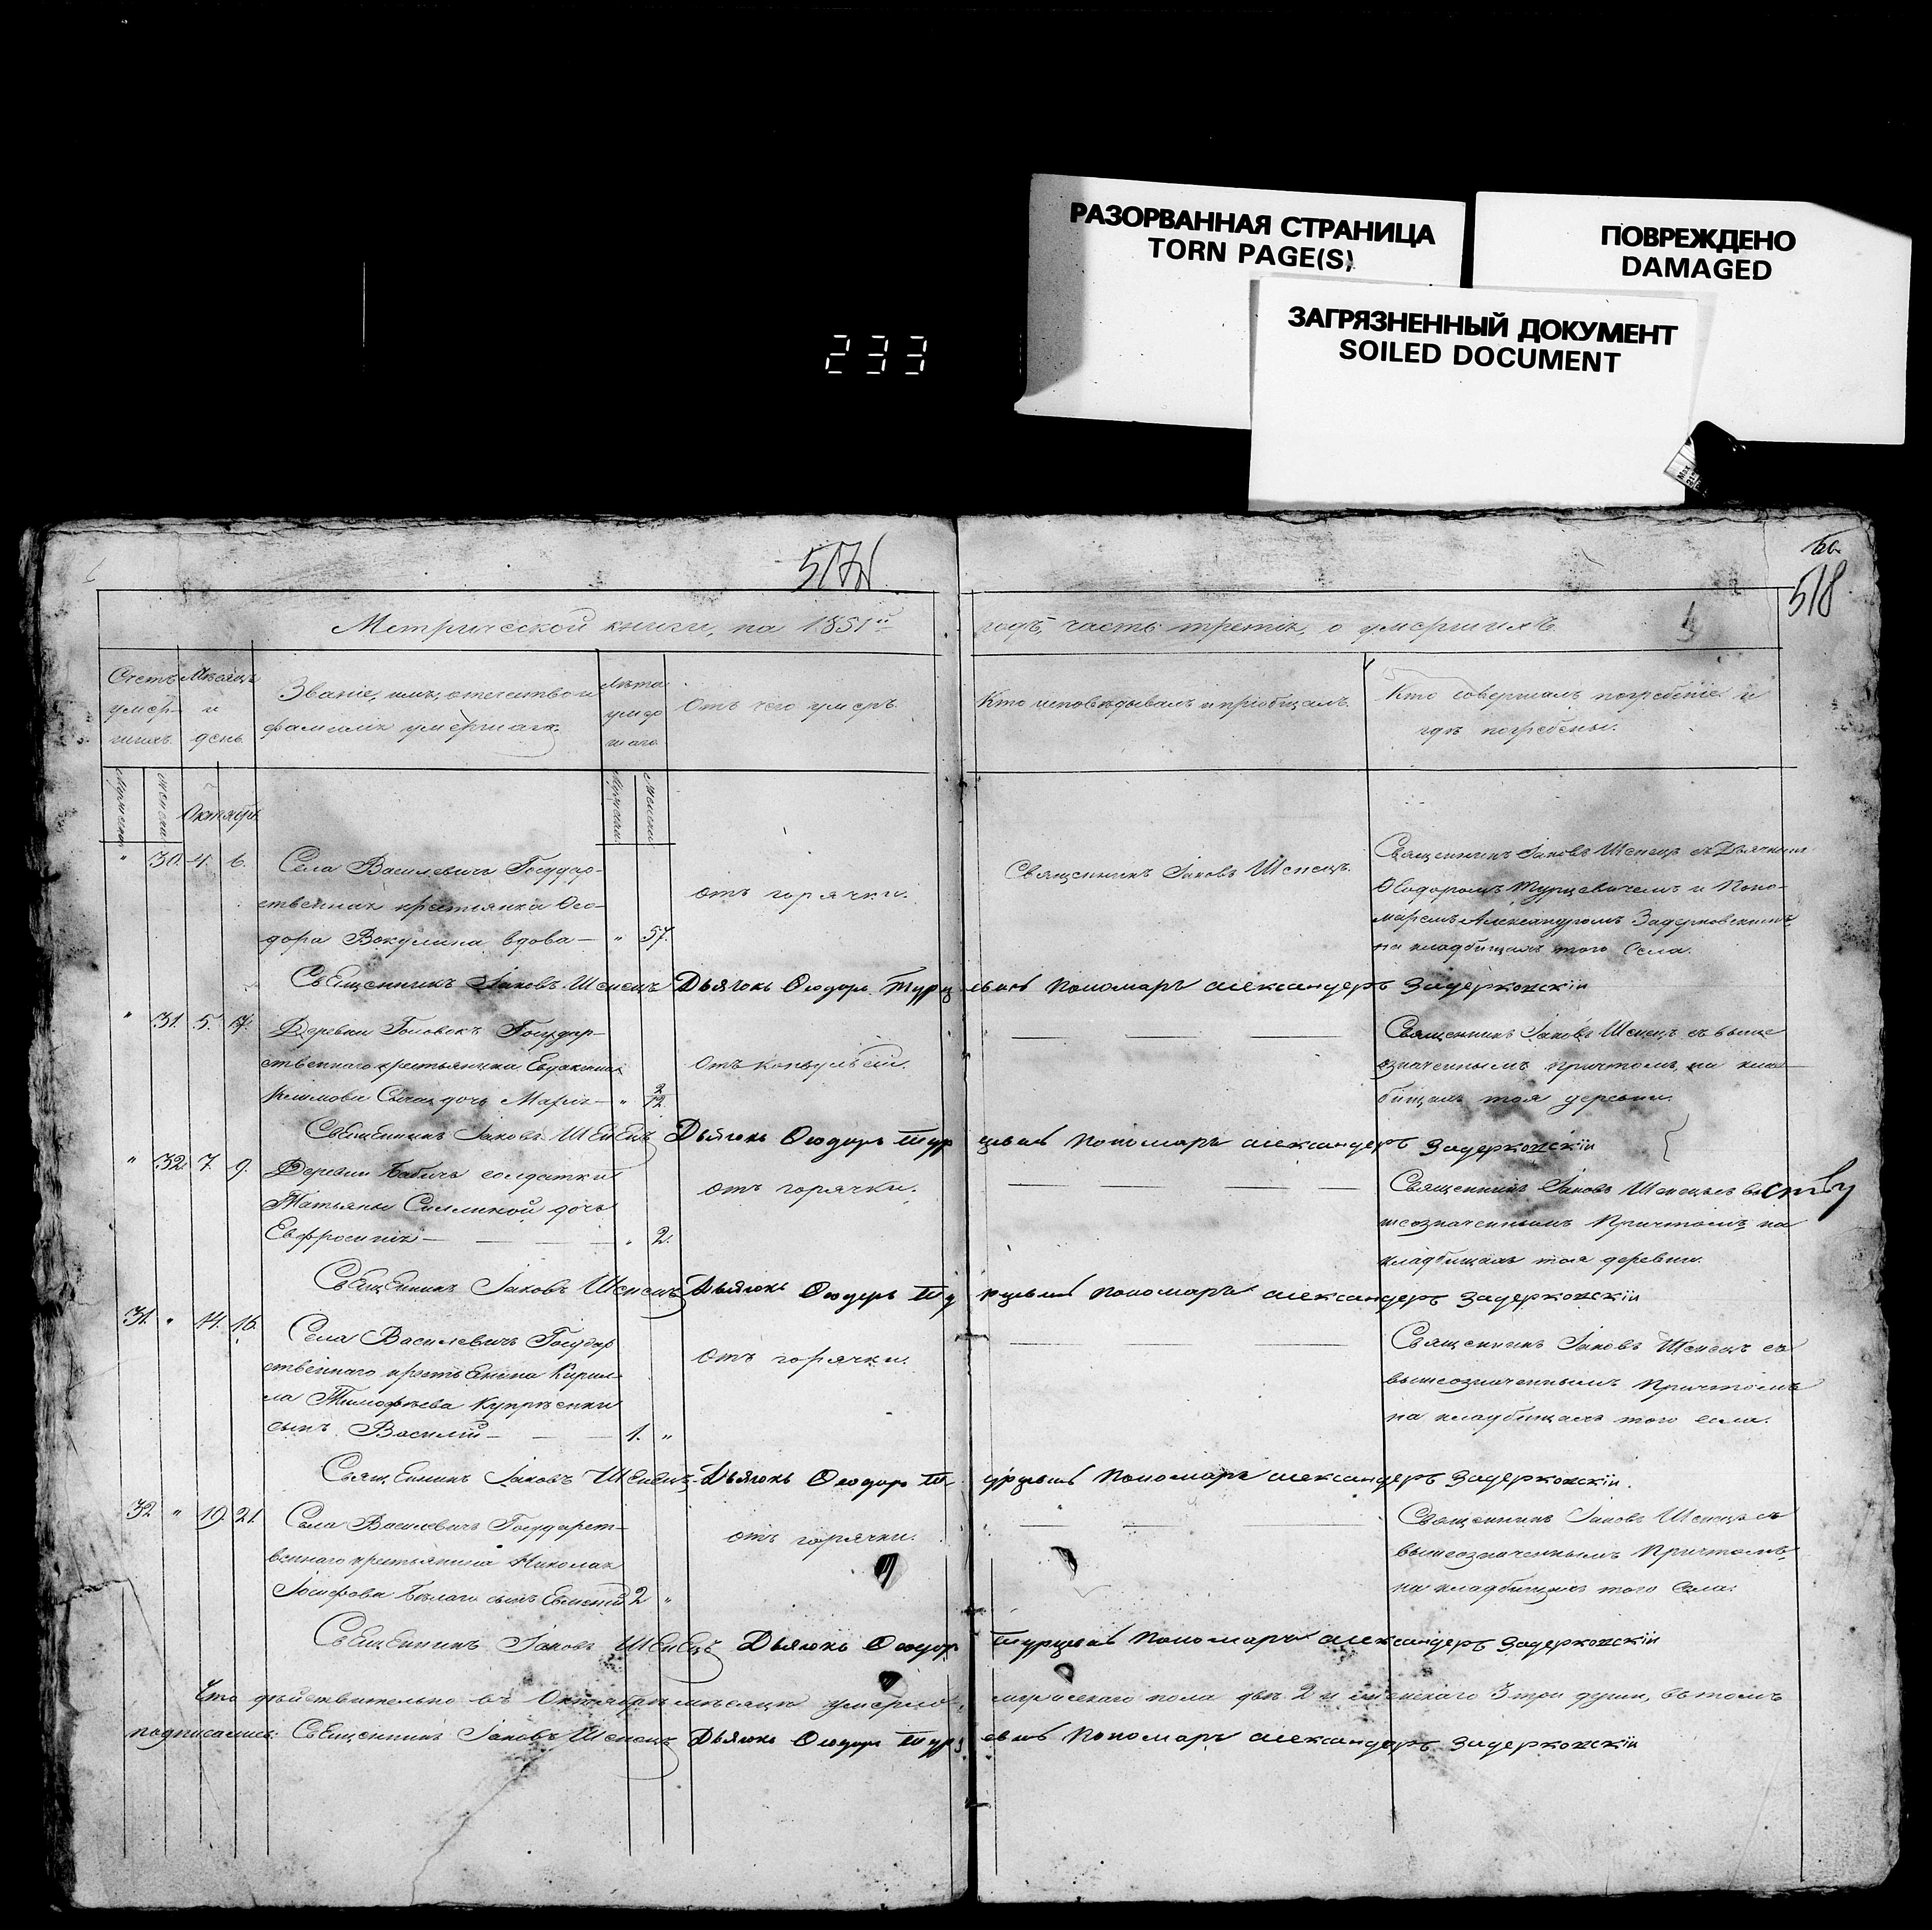 РАЗОРВАННАЯ СТРАНИЦА
TORN PAGE(S)
ПОВРЕЖДЕНО
DAMAGED
ЗАГРЯЗНЕННЫЙ ДОКУМЕНТ
SOILED DOCUMENT
233
517
518
Метрической книги, на 1851й годъ, часть третія, о умершихъ
Счетъ умерших
Мѣсяцъ и день
Званіе, имя, отечество и фамилія умершаго
Лѣта умершаго
Отъ чего умеръ
Кто исповѣдывалъ и пріобщалъ
Кто совершалъ погребеніе и гдѣ погребены.
Мужеска
Женска
Октябрь
Мужеска
Женска
" 30. 4. 6.
Села Василевичь Государ-
ственная крестьянка Ѳео-
дора Вакулина вдова — " 57.
отъ горячки.
Священникъ Іаковъ Шепецъ.
Священникъ Іаковъ Шепецъ съ Дьячкомъ
Ѳеодоромъ Турцевичемъ и Поно-
маремъ Александромъ Задерковскимъ
на кладбищахъ того Села.
Священникъ Іаковъ Шепецъ Дьячокъ Ѳеодоръ Турцевичъ Пономаръ александеръ Задерковскій
" 31. 5. 7.
Деревни Головокъ Государ-
ственнаго крестьянина
Климова дочь Марія — " 2/12
отъ конвульсіи.
Священникъ Іаковъ Шепецъ съ выше
означеннымъ причтомъ на клад-
бищахъ тоя деревни.
Священникъ Іаковъ Шепецъ Дьячокъ Ѳеодоръ Турцевичъ Пономаръ александеръ Задерковскій
" 32. 7. 9.
Деревни Бабичь солдатки
Татьяны дочь
Евфросинія — " 2.
отъ горячки.
Священникъ Іаковъ Шепецъ съ вы-
шеозначеннымъ Причтомъ на
кладбищахъ тоя деревни.
Священникъ Іаковъ Шепецъ Дьячокъ Ѳеодоръ Турцевичъ Пономаръ александеръ Задерковскій
31. " 14. 16.
Села Василевичь Государ
ственнаго крестьянина Кирил-
ла Тимофѣева Купрѣенки
сынъ Василій — 1. "
отъ горячки.
Священникъ Іаковъ Шепецъ съ
вышеозначеннымъ Причтомъ
на кладбищахъ того села.
Священникъ Іаковъ Шепецъ Дьячокъ Ѳеодоръ Турцевичъ Пономаръ александеръ Задерковскій.
32 " 19. 21.
Села Василевичь Государст-
веннаго крестьянина Николая
Іосифова Бѣлаго сынъ Евменій 2 "
отъ горячки.
Священникъ Іаковъ Шепецъ съ
вышеозначеннымъ Причтомъ
на кладбищахъ того Села.
Священникъ Іаковъ Шепецъ Дьячокъ Ѳеодоръ Турцевичъ Пономаръ александеръ Задерковскій
Что дѣйствительно въ Октябрѣ мѣсяцѣ умерло мужескаго пола двѣ 2 и женскаго 3 три души, въ томъ
подписались: Священникъ Іаковъ Шепецъ Дьячокъ Ѳеодоръ Турцевичъ Пономаръ александеръ Задерковскій